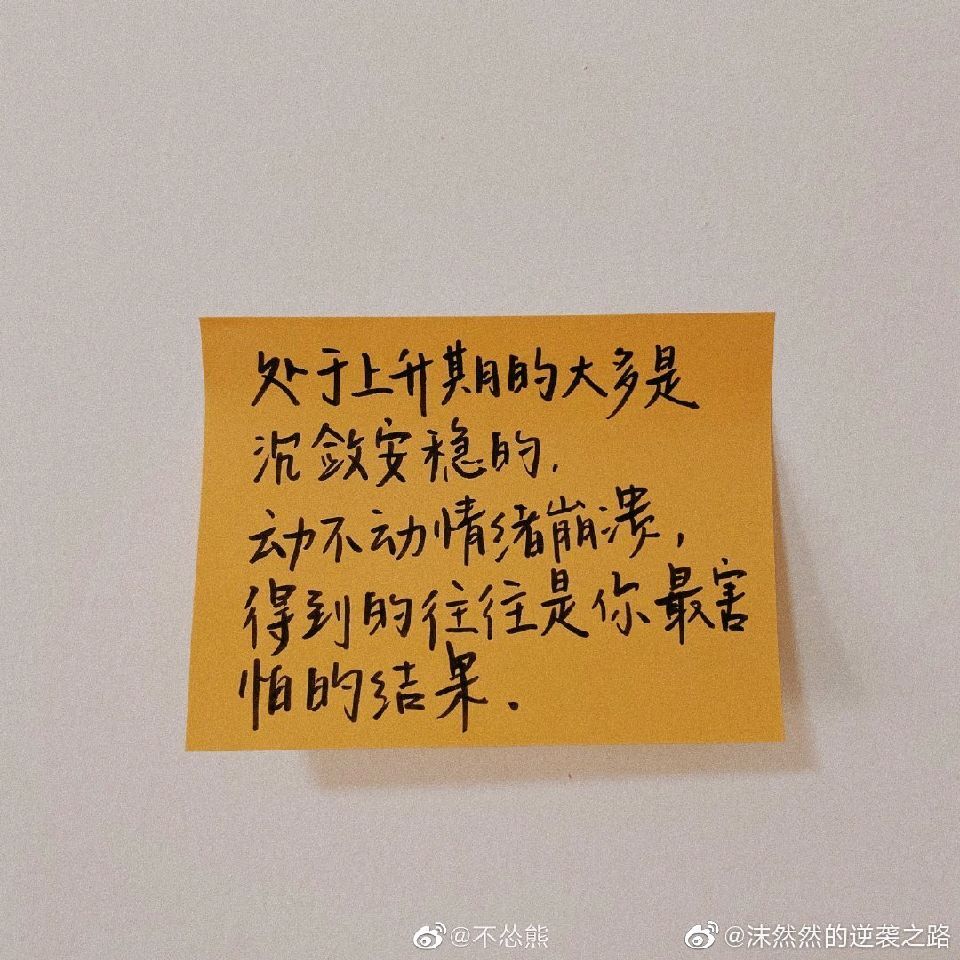 处于上升期的大多是
沉敛安稳的.
动不动情绪崩溃,
得到的往往是你最害
怕的结果.
@不怂熊
@沫然然的逆袭之路